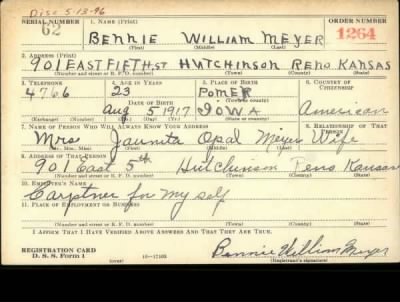 Disc 5-13-96
SERIAL NUMBER 1. NAME (Print) ORDER NUMBER
62 BENNIE WILLIAM MEYER 1264
(First) (Middle) (Last)
2. ADDRESS (Print)
901 EAST FIFTH ST HUTCHINSON RENO KANSAS
(Number and street or R. F. D. number) (Town) (County) (State)
3. TELEPHONE 4. AGE IN YEARS 5. PLACE OF BIRTH 6. COUNTRY OF CITIZENSHIP
4766 23 POMER
(Town or county)
DATE OF BIRTH
Aug 5 1917 IOWA American
(Exchange) (Number) (Mo.) (Day) (Yr.) (State or country)
7. NAME OF PERSON WHO WILL ALWAYS KNOW YOUR ADDRESS 8. RELATIONSHIP OF THAT PERSON
Mrs Jaunita Opal Meyer Wife
(Mr., Mrs., Miss) (First) (Middle) (Last)
9. ADDRESS OF THAT PERSON
901 East 5th Hutchinson Reno Kansas
(Number and street or R. F. D. number) (Town) (County) (State)
10. EMPLOYER'S NAME
for my self
11. PLACE OF EMPLOYMENT OR BUSINESS
(Number and street or R. F. D. number) (Town) (County) (State)
I AFFIRM THAT I HAVE VERIFIED ABOVE ANSWERS AND THAT THEY ARE TRUE.
Bennie William Meyer
REGISTRATION CARD
D. S. S. Form 1 (over) (Registrant's signature)